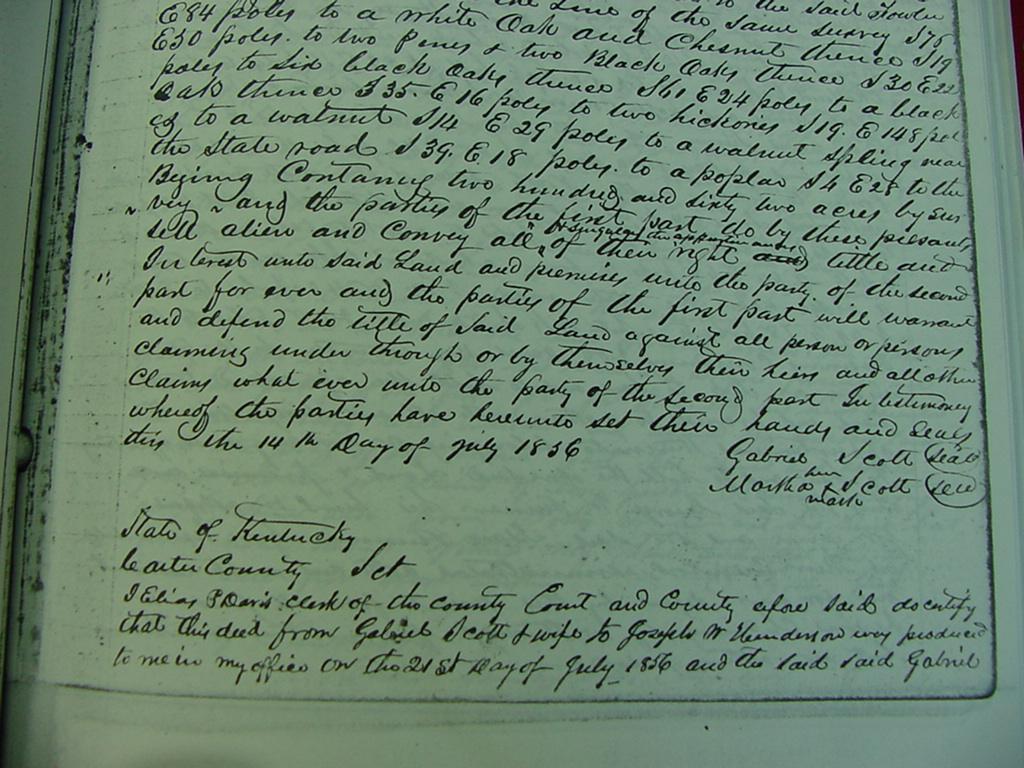 the Line of the Same Survey S 76
E 84 poles to a white Oak and Chesnut thence S 19
E 50 poles. to two pines & two Black Oaks thence S 30 E 22
poles to Six black Oaks thence S 61 E 24 poles to a black
Oak thence S 35. E 16 poles to two hickories S 19. E 148 pol
es to a walnut S 14 E 29 poles to a walnut Spling near
the State road S 39. E 18 poles. to a poplar S 4 E 28 to the
Begining Containing two hundred and sixty two acres by sur
vey and the parties of the first part do by these presants
Sell alien and Convey all & Singular the appurtenances of their right and tittle and
Interest unto said Land and premises unto the party. of the second
part for ever and the parties of the first part will warrant
and defend the title of Said Land against all person or persons
claiming under through or by themselves their heirs and all other
claims what ever unto the party of the second part In testimoney
whereof the parties have hereunto set their hands and seals
this the 14th Day of July 1856
Gabriel Scott Seal
her
Martha + Scott Seal
mark
State of Kentucky
Carter County Sct
I Elias P Davis clerk of the county Court and County afore said do certify
that this deed from Gabriel Scott & wife to Joseph W Henderson was produced
to me in my office on the 21st Day of July 1856 and the said said Gabriel